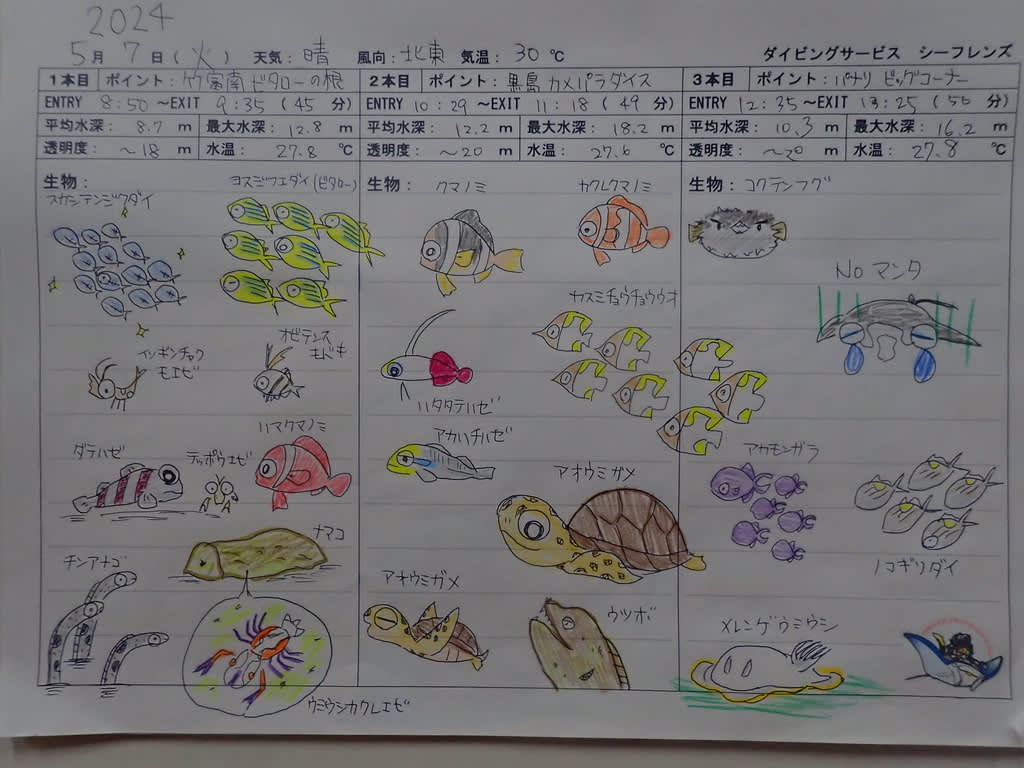 2024
5月 7日(火) 天気：晴 風向：北東 気温：30℃ ダイビングサービス シーフレンズ
1本目 ポイント：竹富南ビタローの根
ENTRY 8:50～EXIT 9:35(45分)
平均水深：8.7 m 最大水深：12.8 m
透明度：～18 m 水温：27.8 ℃
生物：
ヨスジフエダイ(ビタロー)
スカシテンジクダイ
イソギンチャク
モエビ
オビテンス
モドキ
ハマクマノミ
ダテハゼ
テッポウエビ
ナマコ
チンアナゴ
ウミウシカクレエビ
2本目 ポイント：黒島カメパラダイス
ENTRY 10:29～EXIT 11:18(49分)
平均水深：12.2 m 最大水深：18.2 m
透明度：～20 m 水温：27.6 ℃
生物：
クマノミ
カクレクマノミ
カスミチョウチョウウオ
ハタタテハゼ
アカハチハゼ
アオウミガメ
アオウミガメ
ウツボ
3本目 ポイント：パナリ ビッグコーナー
ENTRY 12:35～EXIT 13:25(50分)
平均水深：10.3 m 最大水深：16.2 m
透明度：～20 m 水温：27.8 ℃
生物：コクテンフグ
Noマンタ
アカモンガラ
ノコギリダイ
メレンゲウミウシ